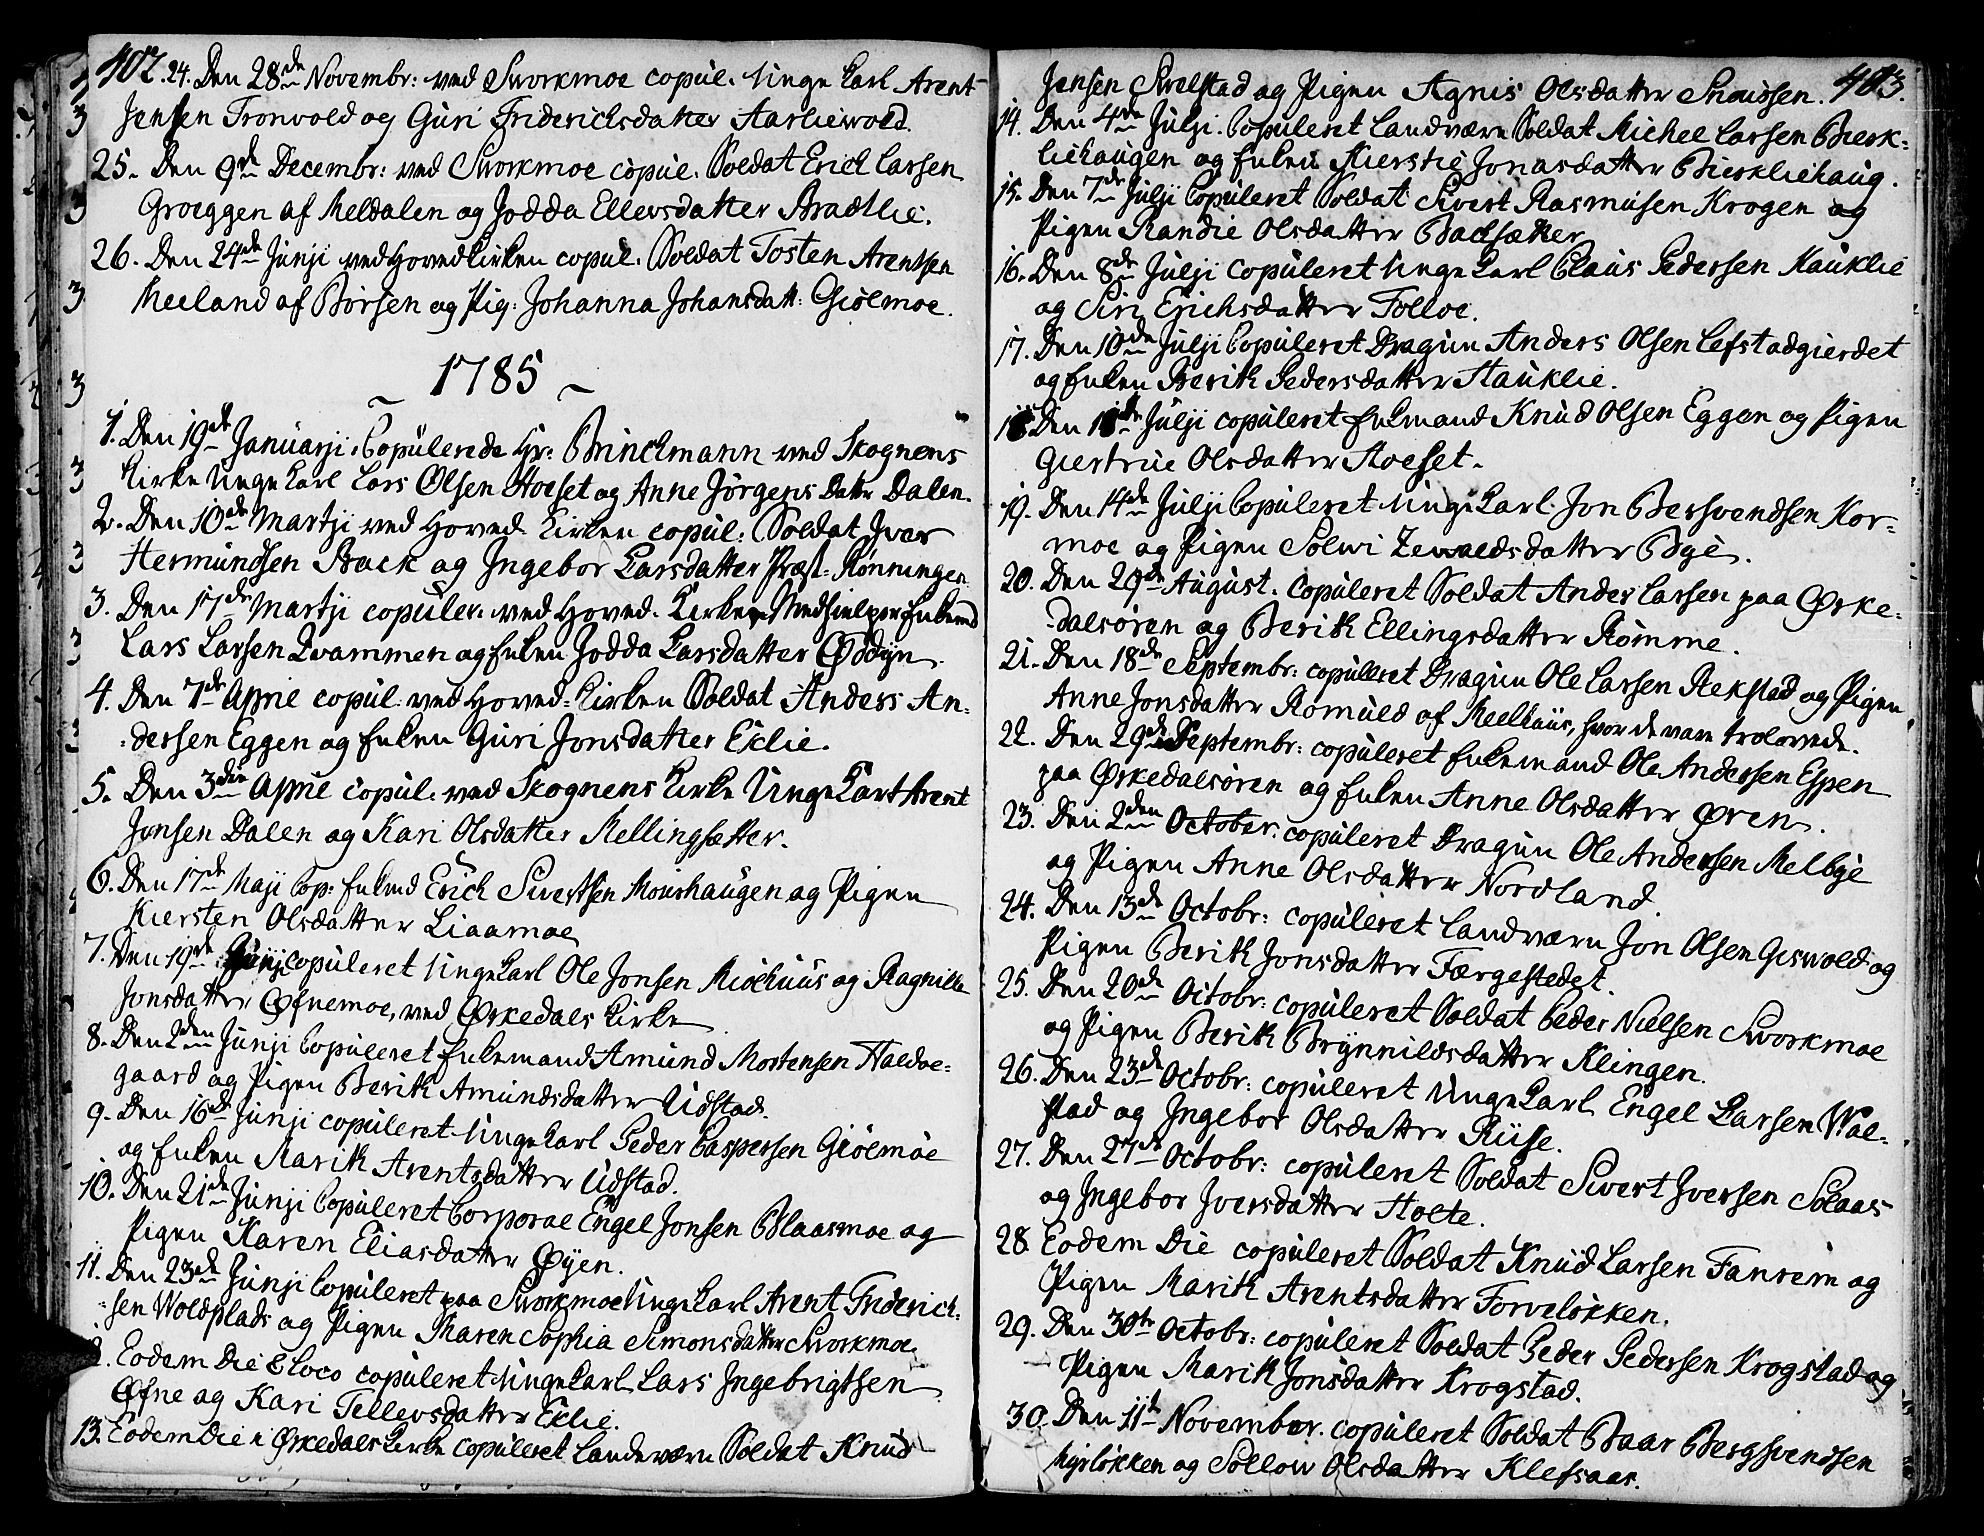 402. 24. Den 28de Novembr: ved Svorkmoe copul. Unge Karl Arent
Jensen Tronvold og Guri Friderichsdatter Aarliewold.
25. Den 9de Decembr: ved Svorkmoe copul. Soldat Erich Larsen
Groeggen af Meldalen og Jodda Ellevsdatter Bradtlie.
26. Den 24de Junji ved Hovedkirken copul. Soldat Tosten Arentsen
Meeland af Børsen og Pig: Johanna Johansdatt: Giølmoe.
1785
1. Den 19de Januarji. Copulerede Hr: Brinchmann ved Skognens
Kirke Unge Karl Lars Olsen Hoeset og Anne Jørgens Datt. Dalen.
2. Den 10de Martji ved Hoved Kirken copul: Soldat Jver
Hermundsen Back og Ingebor Larsdatter Præst-Rønningen
3. Den 17de Martji copuler. ved Hoved-Kirken Medhielper Enkemd
Lars Larsen Qvammen og Enken Jodda Larsdatter Oddyn.
4. Den 7de Aprie copul. ved Hoved-Kirken Soldat Anders An-
dersen Eggen og Enken Guri Jonsdatter Eklie.
5. Den 3den April copul. ved Skognens Kirke Unge Karl Arent
Jonsen Dalen og Kari Olsdatter Mellingsætter.
6. Den 17de Maji Cop: Enkemd Erich Sivertsen Moushaugen og Pigen
Kiersten Olsdatter Liaamoe
7. Den 19de Junji copuleret Unge Karl Ole Jonsen Miølhuus og Ragnille
Jonsdatter Øfnemoe, ved Ørkedals Kirke
8. Den 2den Junji Copuleret Enkemand Amund Mortensen Haldoe-
gaard og Pigen Berith Amundsdatter Udstad.
9. Den 16de Junji copuleret Unge Karl Peder Caspersen Giølmoe
og Enken Marith Arentsdatter Udstad.
10. Den 21de Junji Copuleret Corporal Engel Jonsen Blaasmoe og
Pigen Karen Eliasdatter Øyen.
11. Den 23de Junji Copuleret paa Svorkmoe Unge Karl Arent Friderich-
sen Woldplads og Pigen Maren Sophia Simonsdatter Svorkmoe.
12. Eodem Die & Loco copuleret Unge Karl Lars Ingebrigtsen
Øfne og Kari Tellevsdatter Eklie.
13. Eodem Die i Ørkedals Kirke copuleret Landeværn Soldat Knud
403.
Jensen Svelstad og Pigen Agnis Olsdatter Snoussen.
14. Den 4de Julji. Copuleret Landværn Soldat Michel Larsen Biørk-
liehaugen og Enken Kierstie Jonasdatter Biørkliehaug.
15. Den 7de Julji Copuleret Soldat Sivert Rasmusen Krogen og
Pigen Randie Olsdatter Backsætter
16. Den 8de Julji copuleret Unge Karl Claus Pedersen Hauklie
og Siri Erichsdatter Folloe.
17. Den 10de Julji Copuleret Dragun Anders Olsen Lefstadgierdet
og Enken Berith Pedersdatter Hauklie.
18. Den 11de Julji copuleret Enkemand Knud Olsen Eggen og Pigen
Giertrue Olsdatter Hoeset.
19. Den 14de Julji Copuleret Unge Karl Jon Bersvendsen Hor-
moe og Pigen Solwi Zewaldsdatter Bye.
20. Den 29de August. copuleret Soldat Ander Larsen paa Ørke-
dalsøren og Berith Ellingsdatter Rømme.
21. Den 18de Septembr: copulleret Dragun Ole Larsen Rekstad og Pigen
Anne Jonsdatter Romuld af Meelhuus, hvor de vare trolovede.
22. Den 29de Septembr: copuleret Enkemand Ole Andersen Espen
paa Ørkedalsøren og Enken Anne Olsdatter Øren.
23. Den 2den October. copuleret Dragun Ole Andersen Melbye
og Pigen Anne Olsdatter Nordland.
24. Den 13de Octobr: copuleret Landværn Jon Olsen Giswold og
Pigen Berith Jonsdatter Færgestedet.
25. Den 20de Octobr: copuleret Soldat Peder Nielsen Svorkmoe
og Pigen Berith Brynnildsdatter Klingen.
26. Den 23de Octobr: copuleret Unge Karl Engel Larsen Wal-
stad og Ingebor Olsdatter Riise.
27. Den 27de Octobr: copuleret Soldat Sivert Iversen Solaas
og Ingebor Iversdatter Holte.
28. Eodem Die copuleret Soldat Knud Larsen Fanrem og
Pigen Marith Arentsdatter Torveløkken.
29. Den 30te Octobr: copuleret Soldat Peder Pedersen Krogstad og
Pigen Marith Jonsdatter Krogstad.
30. Den 11te November. copuleret Soldat Baar Bergsvendsen
Myrløkken og Sollow Olsdatter Klefsaas.